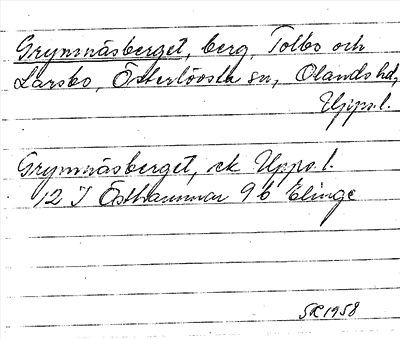 Grymnäsberget, berg, Tolbo och
Larsbo, Österlövsta sn, Olands hd,
Upps. l.
Grymnäsberget, ek Upps. l.
12 I Östhammar 9 b Elinge
SK 1958